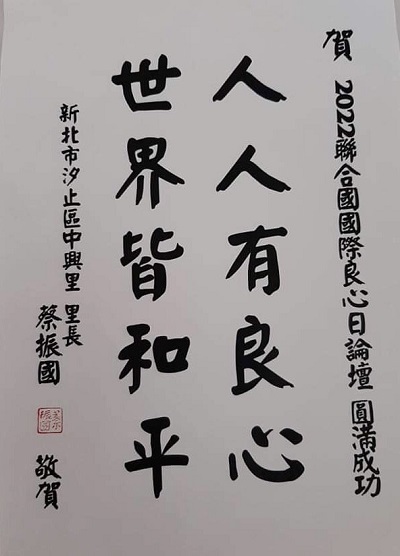 賀 2022聯合國國際良心日論壇 圓滿成功
人人有良心
世界皆和平
新北市汐止區中興里 里長 蔡振國 敬賀